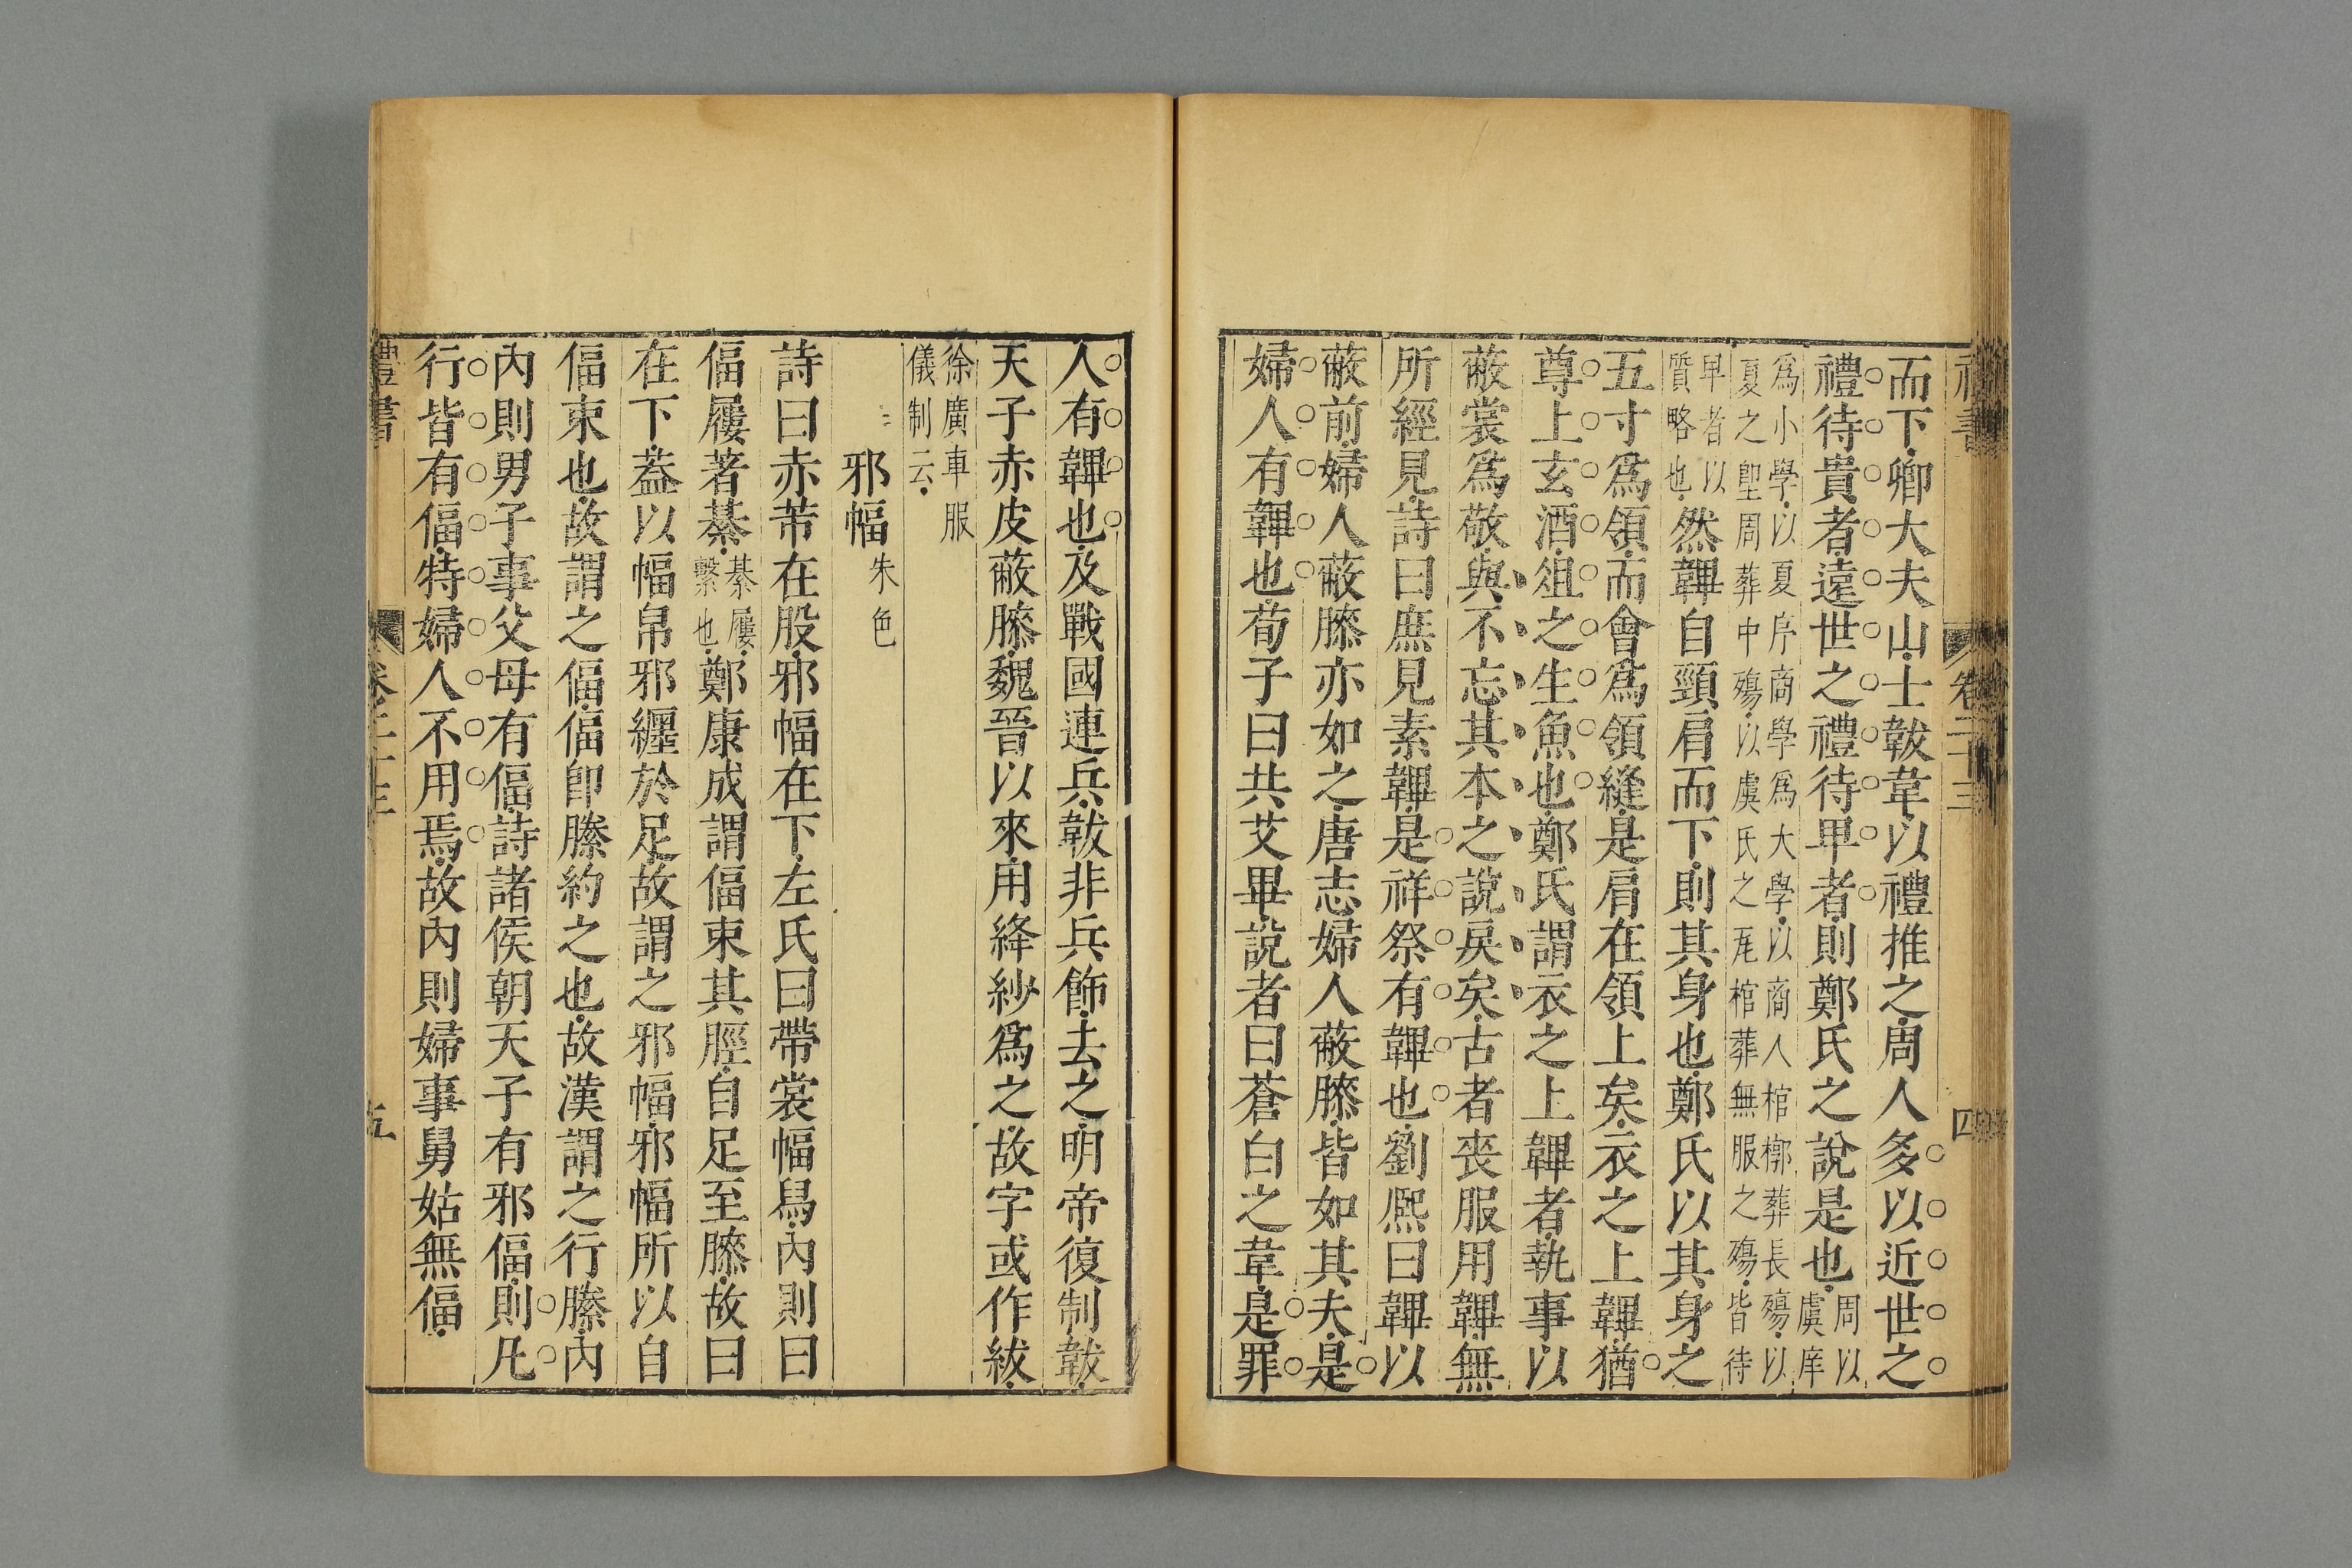 禮書 卷二十三 四
而下卿大夫山士韍韋以禮推之周人多以近世之
禮待貴者遠世之禮待卑者則鄭氏之說是也周以
虞庠
爲小學以夏序商學爲大學以商人棺槨葬長殤以
夏之堲周葬中殤以虞氏之瓦棺葬無服之殤皆待
卑者以
質略也然韠自頸肩而下則其身也鄭氏以其身之
五寸爲領而會爲領縫是肩在領上矣衣之上韠猶
尊上玄酒俎之生魚也鄭氏謂衣之上韠者執事以
蔽裳爲敬與不忘其本之說戾矣古者喪服用韠無
所經見詩曰庶見素韠是祥祭有韠也劉熙曰韠以
蔽前婦人蔽膝亦如之唐志婦人蔽膝皆如其夫是
婦人有韠也荀子曰共艾畢說者曰蒼白之韋是罪
人有韠也及戰國連兵韍非兵飾去之明帝復制韍
天子赤皮蔽膝魏晉以來用絳紗爲之故字或作紱
徐廣車服
儀制云
邪幅朱色
詩曰赤芾在股邪幅在下左氏曰帶裳幅舄內則曰
偪屨著綦綦屨
繫也鄭康成謂偪束其脛自足至膝故曰
在下蓋以幅帛邪纏於足故謂之邪幅邪幅所以自
偪束也故謂之偪偪卽縢約之也故漢謂之行縢內
內則男子事父母有偪詩諸侯朝天子有邪偪則凡
行皆有偪特婦人不用焉故內則婦事舅姑無偪
禮書 卷二十三 五